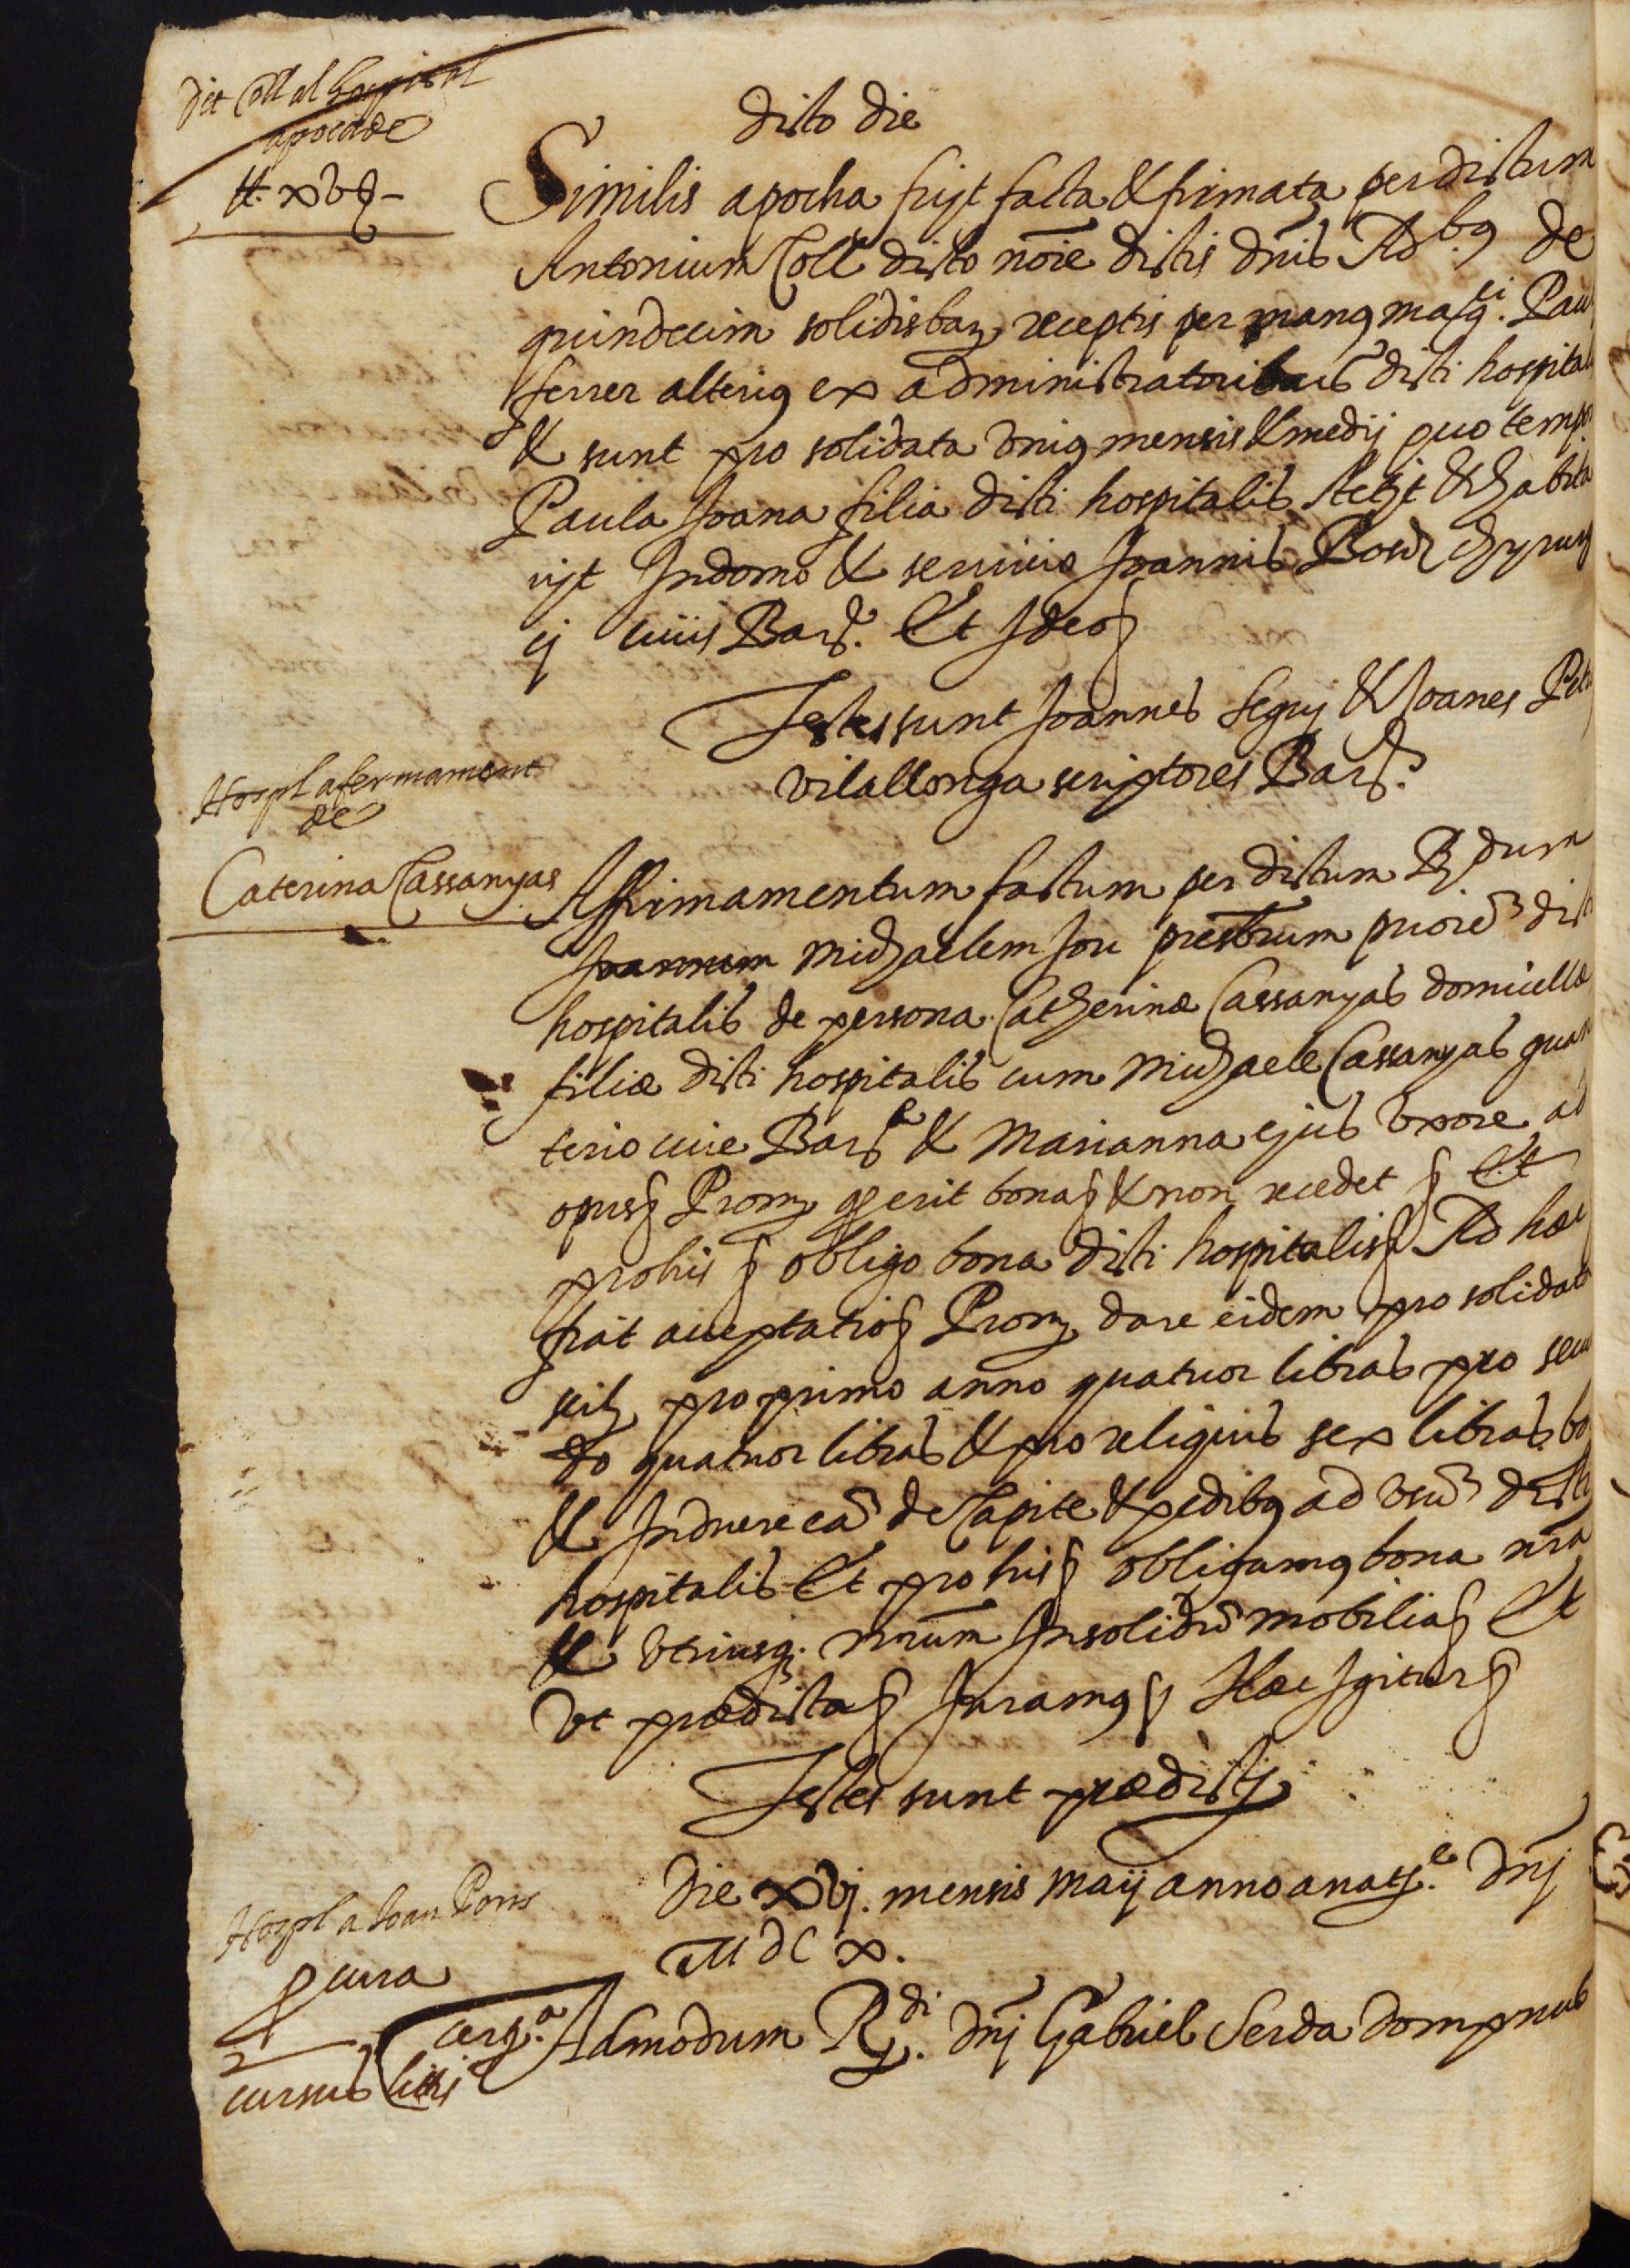 Dit Coll al hospital
apocade
tt. xv ß –
Dicto die
Similis apocha fuit facta & firmata per dictum
Antonium Coll dicto noĩe dictis dnis Adbg de
quindecim solidis barz receptis per mang magci. Pauli
ferrer alterig ex administratoribus dicti hospitalis
& sunt pro solidata vnig mensis & medij quo tempore
Paula Joana filia dicti hospitalis stetit & habita
vit In domo & seruicio Joannis Bosch chyrurg
ij ciuis Barz. Et Ideo ß
Testes sunt Joannes Seguj & Joanes Petrus
vilallonga scriptores Barz.
Hospl afermament
de
Caterina Cassanyas
Affirmamentum factum per dictum Rdum
Joannem Michaelem Jou prestrum priorẽ dicti
hospitalis de persona Catherinæ Cassanyas domicellæ
filiæ dicti hospitalis cum Michaele Cassanyas guan
terio ciue Barz & Marianna ejus vxore ad
opus ß Promz q erit bona ß & non recedet ß Et
pro his ß obligo bona dicti hospitalis ß Ad hæc
fuit acceptatio ß Promz dare eidem pro solidata
scilz pro primo anno quatuor libras pro secun
do quatuor libras & pro reliquis sex libras bar
& Induere eã de Capite & pedibg ad vsũ dicti
hospitalis Et pro his ß obligamg bona nra
& vtriusqz. nrum Insolidũ mobilia ß Et
vt prædicta ß Juramg ß Hæc Igitur ß
Testes sunt prædictj
Die xvj. mensis Maij anno a natj.e Dnj
MDCx.
Hospl a Joan Pons
pcura
cursus litis
Admodum Rdi. Dnj Gabriel Serda Dompnus